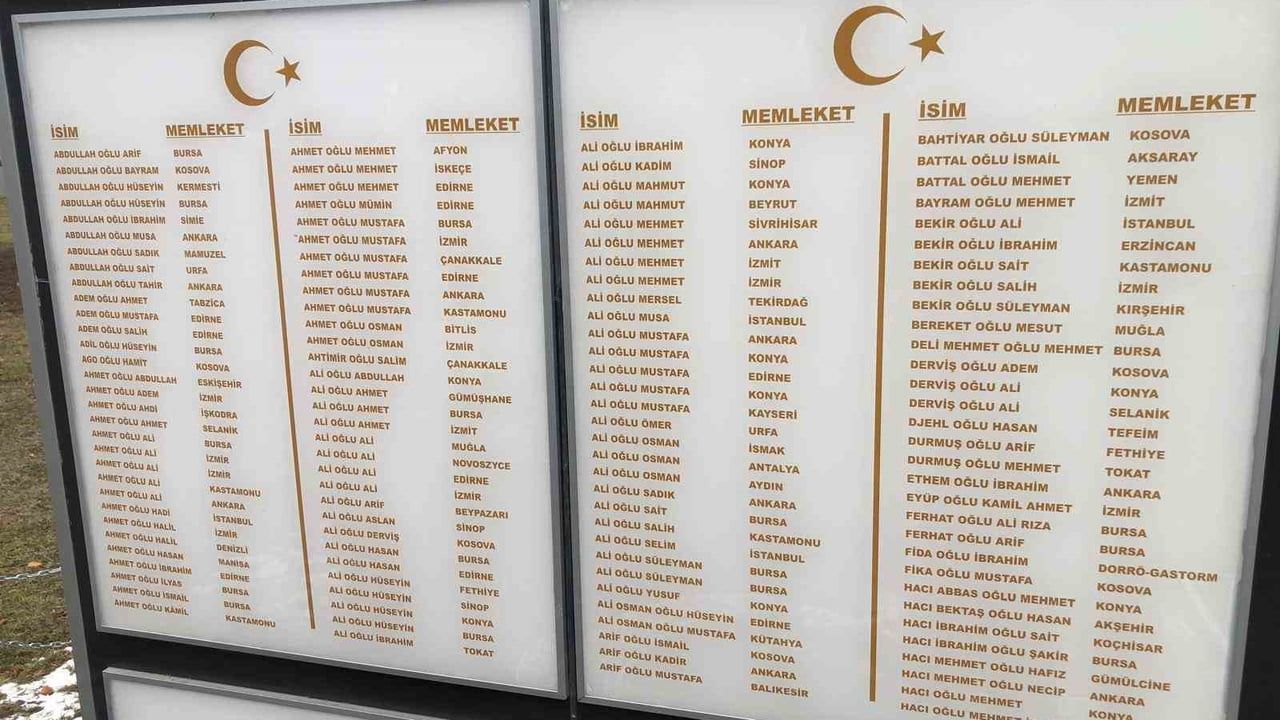 İSİM MEMLEKET
ABDULLAH OĞLU ARİF BURSA
ABDULLAH OĞLU BAYRAM KOSOVA
ABDULLAH OĞLU HÜSEYİN KERMESTİ
ABDULLAH OĞLU HÜSEYİN BURSA
ABDULLAH OĞLU İBRAHİM SİMİE
ABDULLAH OĞLU MUSA ANKARA
ABDULLAH OĞLU SADIK MAMUZEL
ABDULLAH OĞLU SAİT URFA
ABDULLAH OĞLU TAHİR ANKARA
ADEM OĞLU AHMET TABZİCA
ADEM OĞLU MUSTAFA EDİRNE
ADEM OĞLU SALİH EDİRNE
ADİL OĞLU HÜSEYİN BURSA
AGO OĞLU HAMİT KOSOVA
AHMET OĞLU ABDULLAH ESKİŞEHİR
AHMET OĞLU ADEM İZMİR
AHMET OĞLU AHDİ İŞKODRA
AHMET OĞLU AHMET SELANİK
AHMET OĞLU ALİ BURSA
AHMET OĞLU ALİ İZMİR
AHMET OĞLU ALİ İZMİR
AHMET OĞLU ALİ KASTAMONU
AHMET OĞLU ALİ ANKARA
AHMET OĞLU HADI İSTANBUL
AHMET OĞLU HALİL İZMİR
AHMET OĞLU HALİL DENİZLİ
AHMET OĞLU HASAN MANİSA
AHMET OĞLU İBRAHİM EDİRNE
AHMET OĞLU İLYAS BURSA
AHMET OĞLU İSMAİL BURSA
AHMET OĞLU KAMİL KASTAMONU
İSİM MEMLEKET
AHMET OĞLU MEHMET AFYON
AHMET OĞLU MEHMET İSKEÇE
AHMET OĞLU MEHMET EDİRNE
AHMET OĞLU MÜMİN EDİRNE
AHMET OĞLU MUSTAFA BURSA
AHMET OĞLU MUSTAFA İZMİR
AHMET OĞLU MUSTAFA ÇANAKKALE
AHMET OĞLU MUSTAFA EDİRNE
AHMET OĞLU MUSTAFA ANKARA
AHMET OĞLU MUSTAFA KASTAMONU
AHMET OĞLU OSMAN BİTLİS
AHMET OĞLU OSMAN İZMİR
AHTİMİR OĞLU SALİM ÇANAKKALE
ALİ OĞLU ABDULLAH KONYA
ALİ OĞLU AHMET GÜMÜŞHANE
ALİ OĞLU AHMET BURSA
ALİ OĞLU AHMET İZMİT
ALİ OĞLU ALİ MUĞLA
ALİ OĞLU ALİ NOVOSZYCE
ALİ OĞLU ALİ EDİRNE
ALİ OĞLU ALİ İZMİR
ALİ OĞLU ARİF BEYPAZARI
ALİ OĞLU ASLAN SİNOP
ALİ OĞLU DERVİŞ KOSOVA
ALİ OĞLU HASAN BURSA
ALİ OĞLU HASAN EDİRNE
ALİ OĞLU HÜSEYİN FETHİYE
ALİ OĞLU HÜSEYİN SİNOP
ALİ OĞLU HÜSEYİN KONYA
ALİ OĞLU HÜSEYİN BURSA
ALİ OĞLU İBRAHİM TOKAT
İSİM MEMLEKET
ALİ OĞLU İBRAHİM KONYA
ALİ OĞLU KADİM SİNOP
ALİ OĞLU MAHMUT KONYA
ALİ OĞLU MAHMUT BEYRUT
ALİ OĞLU MEHMET SİVRİHİSAR
ALİ OĞLU MEHMET ANKARA
ALİ OĞLU MEHMET İZMİT
ALİ OĞLU MEHMET İZMİR
ALİ OĞLU MERSEL TEKİRDAĞ
ALİ OĞLU MUSA İSTANBUL
ALİ OĞLU MUSTAFA ANKARA
ALİ OĞLU MUSTAFA KONYA
ALİ OĞLU MUSTAFA EDİRNE
ALİ OĞLU MUSTAFA KONYA
ALİ OĞLU MUSTAFA KAYSERİ
ALİ OĞLU ÖMER URFA
ALİ OĞLU OSMAN İSMAK
ALİ OĞLU OSMAN ANTALYA
ALİ OĞLU OSMAN AYDIN
ALİ OĞLU SADIK ANKARA
ALİ OĞLU SAİT BURSA
ALİ OĞLU SALİH KASTAMONU
ALİ OĞLU SELİM İSTANBUL
ALİ OĞLU SÜLEYMAN BURSA
ALİ OĞLU SÜLEYMAN BURSA
ALİ OĞLU YUSUF KONYA
ALİ OSMAN OĞLU HÜSEYİN EDİRNE
ALİ OSMAN OĞLU MUSTAFA KÜTAHYA
ARİF OĞLU İSMAİL KOSOVA
ARİF OĞLU KADİR ANKARA
ARİF OĞLU MUSTAFA BALIKESİR
İSİM MEMLEKET
BAHTİYAR OĞLU SÜLEYMAN KOSOVA
BATTAL OĞLU İSMAİL AKSARAY
BATTAL OĞLU MEHMET YEMEN
BAYRAM OĞLU MEHMET İZMİT
BEKİR OĞLU ALİ İSTANBUL
BEKİR OĞLU İBRAHİM ERZİNCAN
BEKİR OĞLU SAİT KASTAMONU
BEKİR OĞLU SALİH İZMİR
BEKİR OĞLU SÜLEYMAN KIRŞEHİR
BEREKET OĞLU MESUT MUĞLA
DELİ MEHMET OĞLU MEHMET BURSA
DERVİŞ OĞLU ADEM KOSOVA
DERVİŞ OĞLU ALİ KONYA
DERVİŞ OĞLU ALİ SELANİK
DJEHL OĞLU HASAN TEFEİM
DURMUŞ OĞLU ARİF FETHİYE
DURMUŞ OĞLU MEHMET TOKAT
ETHEM OĞLU İBRAHİM ANKARA
EYÜP OĞLU KAMİL AHMET İZMİR
FERHAT OĞLU ALİ RIZA BURSA
FERHAT OĞLU ARİF BURSA
FİDA OĞLU İBRAHİM DORRÖ-GASTORM
FİKA OĞLU MUSTAFA KOSOVA
HACI ABBAS OĞLU MEHMET KONYA
HACI BEKTAŞ OĞLU HASAN AKŞEHİR
HACI İBRAHİM OĞLU SAİT KOÇHİSAR
HACI İBRAHİM OĞLU ŞAKİR BURSA
HACI MEHMET OĞLU HAFIZ GÜMÜLCİNE
HACI MEHMET OĞLU NECİP ANKARA
HACI OĞLU MEHMET KONYA
HACI OĞLU MEHMET